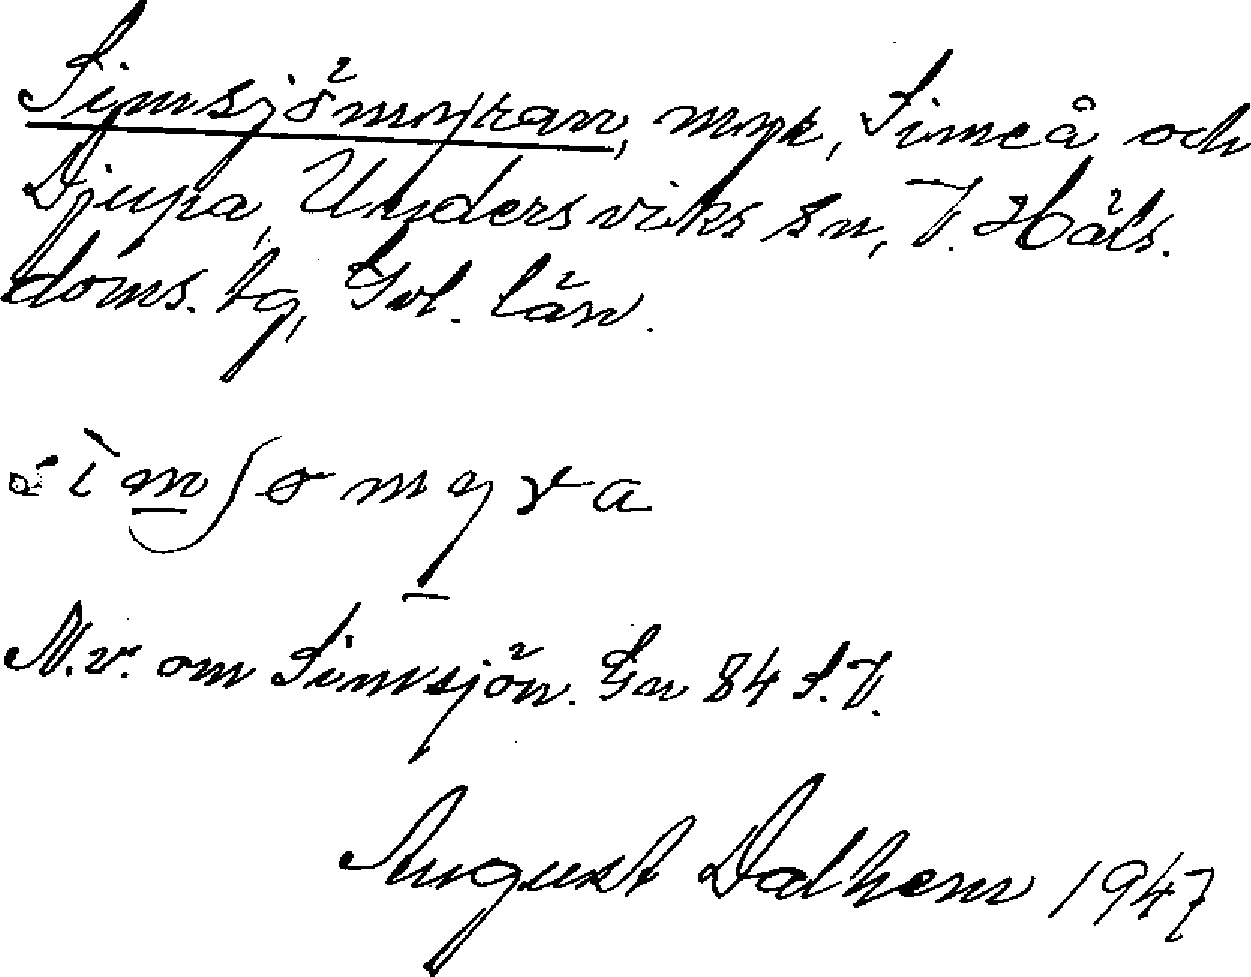 Simsjömyran, myr, Simeå och
Djupa, Undersviks sn, V. Häls.
doms. tg, Gvl. län.
sìmʃømyra
N.v. om Simsjön. Gn 84 S.V.
August Dalhem 1947